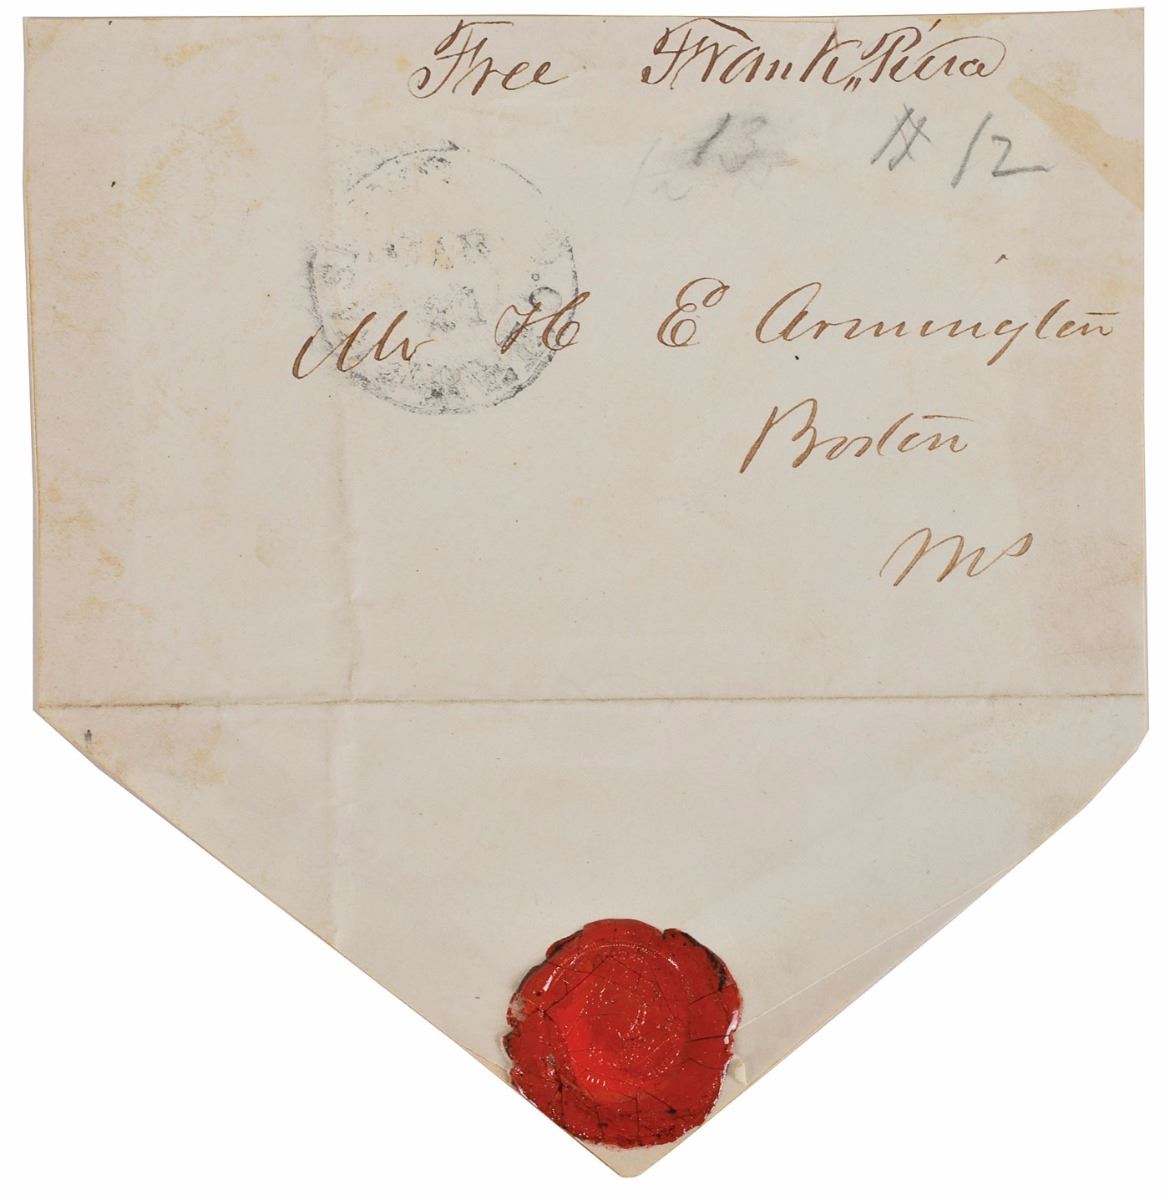 Free Frank,, Pierce
13 # 12
MAR
12
Mr H E Armington
Boston
Ms